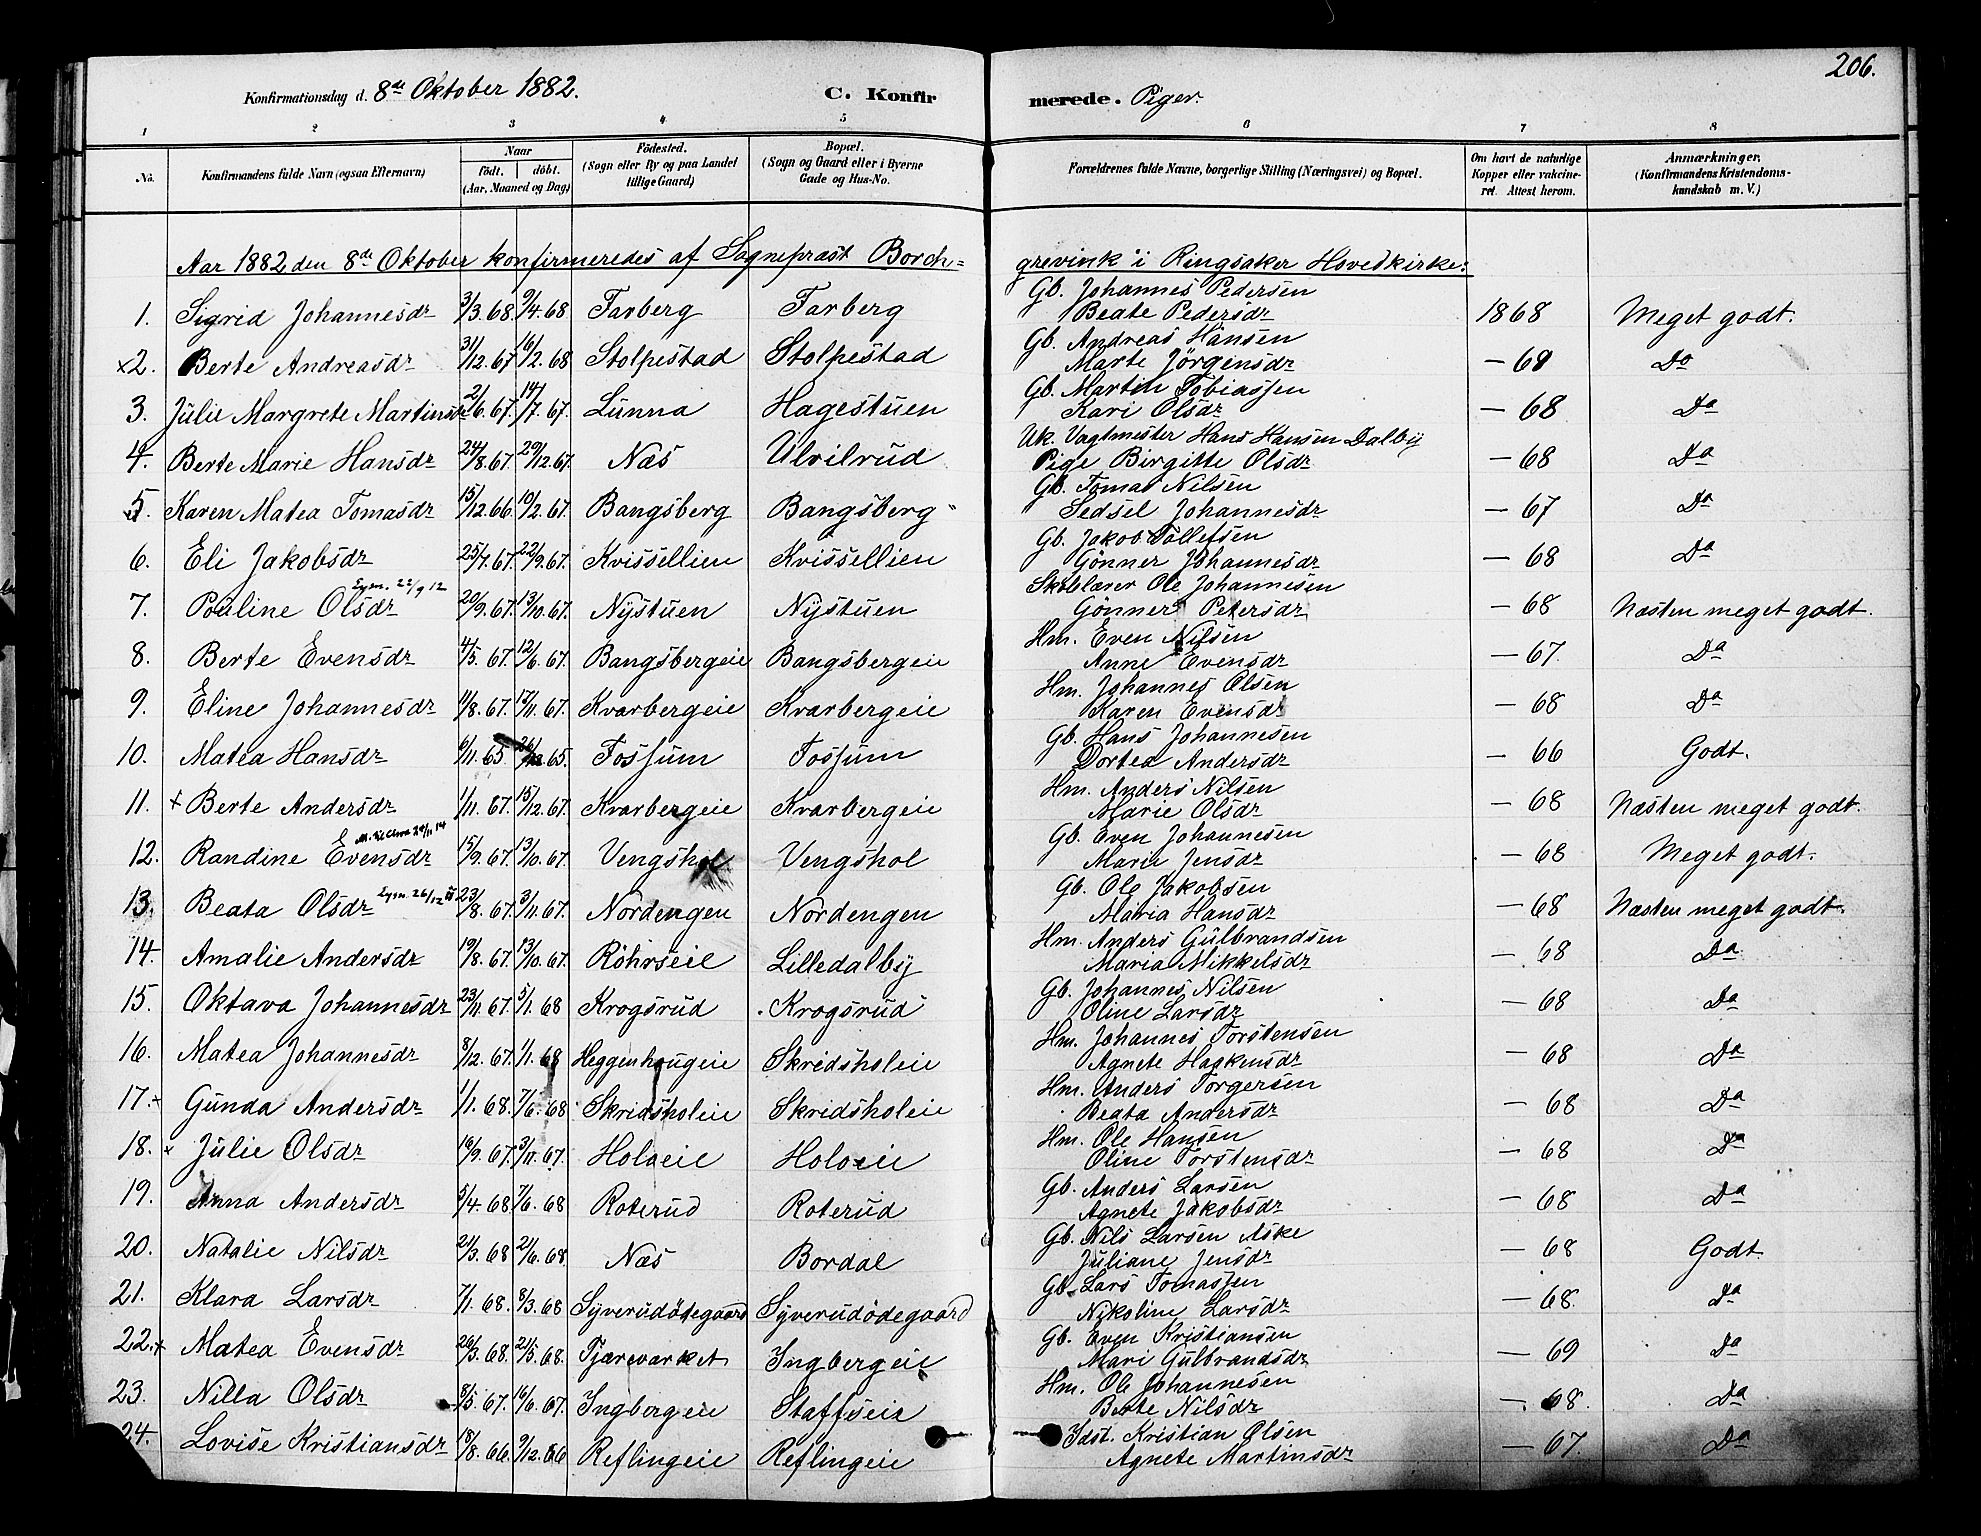 206.
Konfirmationsdag d. 8de Oktober 1882. C. Konfirmerede. Piger.
1 2 3 4 5 6 7 8
No. Konfirmandens fulde Navn (ogsaa Efternavn) Naar født. døbt. (Aar, Maaned og Dag) Fødested. (Sogn eller By og paa Landet tillige Gaard) Bopæl. (Sogn og Gaard eller i Byerne Gade og Hus-No.) Forældrenes fulde Navne, borgerlige Stilling (Næringsvei) og Bopæl. Om havt de naturlige Kopper eller vakcineret. Attest herom. Anmærkninger, (Konfirmandens Kristendomskundskab m. V.)
Aar 1882 den 8de Oktober konfirmeredes af Sogneprast Borchgrevink i Ringsaker Hovedkirke:
1. Sigrid Johannesdr 3/3.68. 9/4.68 Farberg Farberg Gb. Johannes Pedersen 1868 Meget godt.
Beate Pedersdr
x2. Berte Andreasdr 31/12.67 16/2.68 Stolpestad Stolpestad Gb. Andreas Hansen — 68 Do
Marte Jörgensdr
3. Julie Margrete Martinsdr 2/6.67. 14/7.67. Lunna Hagestuen Gb. Martin Tobiassen — 68 Da
Kari Olsdr
4. Berte Marie Hansdr 24/8.67. 29/12.67. Næs Ulvilrud Uk. Vagtmester Hans Hansen Dalby — 68 Da
Pige Birgitte Olsdr
5. Karen Matea Tomasdr 15/12.66. 10/2.67. Bangsberg Bangsberg Gb. Tomas Nilsen — 67 Da
Sedsel Johannesdr
6. Eli Jakobsdr 25/7.67. 22/9.67. Kvissellien Kvissellien Gb. Jakob Tollefsen — 68 Da
Gönner Johannesdr
7. Pouline Olsdr 22/9 12 20/9.67. 13/10.67. Nystuen Nystuen Skolelærer Ole Johannesen — 68 Næsten meget godt.
Gönner Petersdr
8. Berte Evensdr 4/5.67. 12/6.67. Bangsbergeie Bangsbergeie Hm. Even Nilsen — 67. Da
Anne Evensdr
9. Eline Johannesdr 11/8.67. 17/11.67. Kvarbergeie Kvarbergeie Hm. Johannes Olsen — 68 Da
Karen Evensdr
10. Matea Hansdr 6/11.65. 65. Fossum Fossum Gb. Hans Johannesen — 66 Godt.
Dortea Andersdr
11. + Berte Andersdr 1/11.67. 15/12.67. Kvarbergeie Kvarbergeie Hm. Anders Nilsen — 68 Næsten meget godt.
Marie Olsdr
12. Randine Evensdr 15/9.67. 13/10.67. Vengshol Vengshol Gb. Even Johannesen — 68 Meget godt.
Marie Jensdr
13. Beata Olsdr 26/12 23/8.67. 3/11.67. Nordengen Nordengen Gb. Ole Jakobsen — 68 Næsten meget godt.
Maria Hansdr
14. Amalie Andersdr 19/8.67. 13/10.67. Röhrseie Lilledalby Hm. Anders Gulbrandsen — 68 Da
Maria Mikkelsdr
15. Oktava Johannesdr 23/11.67. 5/1.68 Krogsrud Krogsrud Gb. Johannes Nilsen — 68 Da
Oline Larsdr
16. Matea Johannesdr 8/12.67. 1/1.68 Heggenhougeie Skredsholeie Hm. Johannes Torstensen — 68 Da
Agnete Haakensdr
17. x Gunda Andersdr 1/1.68. 7/6.68 Skridsholeie Skridsholeie Hm. Anders Torgersen — 68 Da
Beata Andersdr
18. x Julie Olsdr 16/9.67. 3/11.67. Holoeie Holoeie Hm. Ole Hansen — 68 Da
Oline Torstensdr
19. Anna Andersdr 5/4.68 7/6.68 Roterud Roterud Gb. Anders Larsen — 68 Da
Agnete Jakobsdr
20. Natalie Nilsdr 21/3.68 21/6.68. Næs Bordal Gb. Nils Larsen Aske — 68 Godt
Juliane Jensdr
21. Klara Larsdr 7/1.68. 8/3.68 Syverudödegaard Syverudödegaard Gb. Lars Tomassen — 68. Da
Nikoline Larsdr
22. x Matea Evensdr 20/3.68. 21/5.68. Tjærevarket Ingbergeie Gb. Even Kristiansen — 69 Da
Mari Gulbrandsdr
23. Nilla Olsdr 8/5.67. 16/6.67. Ingbergeie Staffseie Hm. Ole Johannesen — 68. Da
Berte Nilsdr
24. Lovise Kristiansdr 18/8.66. 9/12.66 Reflingeie Reflingeie Idst. Kristian Olsen — 67. Da
Agnete Martinsdr